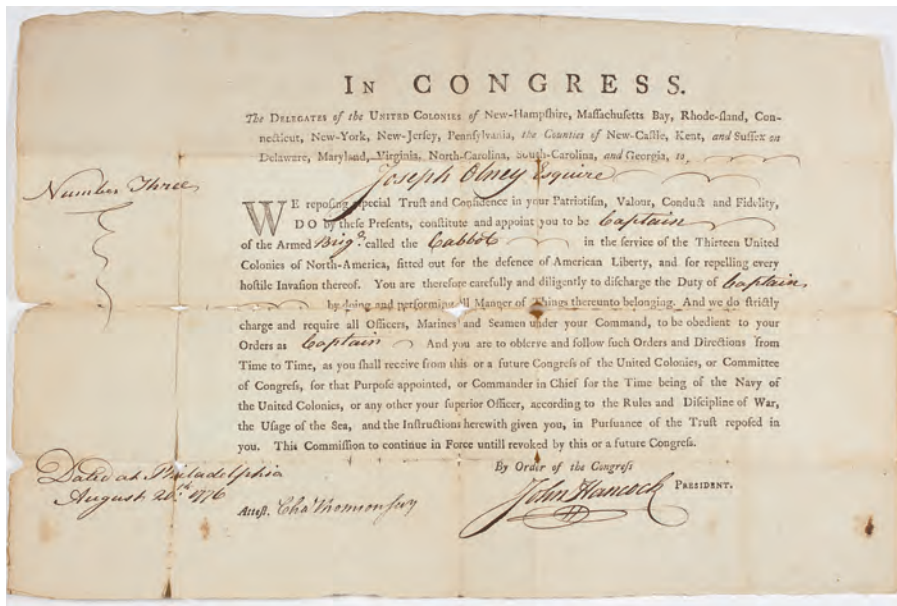 In CONGRESS.
The DELEGATES of the UNITED COLONIES of New-Hampſhire, Maſſachuſetts Bay, Rhode-Iſland, Con-
necticut, New-York, New-Jerſey, Pennſylvania, the Counties of New-Caſtle, Kent, and Suſſex on
Delaware, Maryland, Virginia, North-Carolina, South-Carolina, and Georgia, to
Joseph Olney Esquire
Number Three
WE repoſing eſpecial Truſt and Confidence in your Patriotiſm, Valour, Conduct and Fidelity,
DO by theſe Preſents, conſtitute and appoint you to be Captain
of the Armed Brigᵗ. called the Cabbot in the ſervice of the Thirteen United
Colonies of North-America, fitted out for the defence of American Liberty, and for repelling every
hoſtile Invaſion thereof. You are therefore carefully and diligently to diſcharge the Duty of Captain
by doing and performing all Manner of Things thereunto belonging. And we do ſtrictly
charge and require all Officers, Marines and Seamen under your Command, to be obedient to your
Orders as Captain And you are to obſerve and follow ſuch Orders and Directions from
Time to Time, as you ſhall receive from this or a future Congreſs of the United Colonies, or Committee
of Congreſs, for that Purpoſe appointed, or Commander in Chief for the Time being of the Navy of
the United Colonies, or any other your ſuperior Officer, according to the Rules and Diſcipline of War,
the Uſage of the Sea, and the Inſtructions herewith given you, in Purſuance of the Truſt repoſed in
you. This Commiſſion to continue in Force untill revoked by this or a future Congreſs.
By Order of the Congreſs
John Hancock PRESIDENT.
Dated at Philadelphia
August 20ᵗʰ. 1776
Atteſt. Chaˢ Thomson Secy